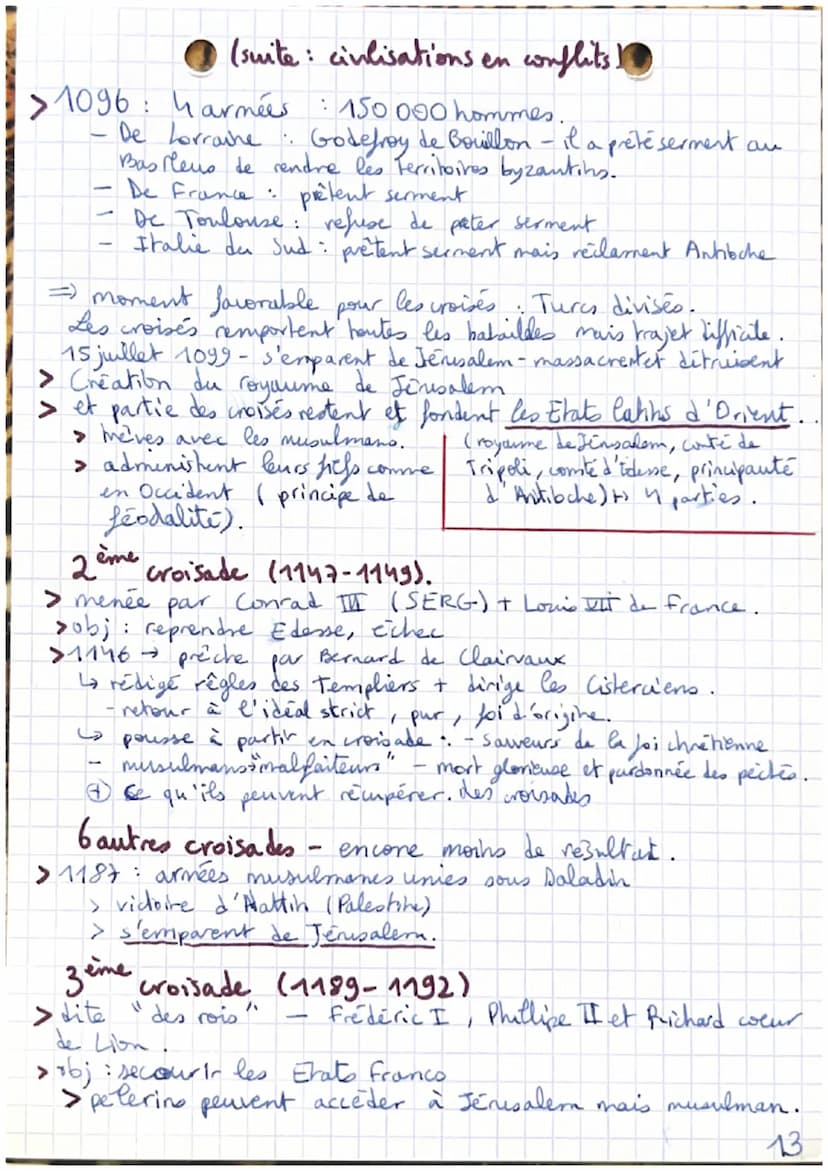 (suite : civilisations en conflits)
> 1096 : 4 armées : 150 000 hommes.
- De Lorraine : Godefroy de Bouillon - il a prêté serment au
Basileus de rendre les territoires byzantins.
- De France : prêtent serment
- De Toulouse : refuse de pêter serment
- Italie du Sud : prêtent serment mais réclament Antioche
⇒ moment favorable pour les croisés : Turcs divisés.
Les croisés remportent toutes les bataildes mais trajet difficile.
15 juillet 1099 - s'emparent de Jérusalem - massacrent et détruisent
> Création du royaume de Jérusalem
> et partie des croisés restent et fondent les Etats latins d'Orient..
> trèves avec les musulmans.
(royaume de Jérusalem, comté de
> administrent leurs fiefs comme
Tripoli, comté d'Edesse, principauté
en Occident ( principe de
d'Antioche) ↦ 4 parties.
féodalité).
2ème croisade (1147-1149).
> menée par Conrad III (SERG) + Louis VII de France.
> obj : reprendre Edesse, échec
> 1146 → prêche par Bernard de Clairvaux
↳ rédigé règles des Templiers + dirige les Cisterciens.
- retour à l'idéal strict, pur, foi d'origine.
↳ pousse à partir en croisade : - sauveurs de la foi chrétienne
- musulmans="malfaiteurs" - mort glorieuse et pardonnée des péchés.
⊕ ce qu'ils peuvent récupérer. des croisades
6 autres croisades - encore moins de résultat.
> 1187 : armées musulmanes unies sous Saladin
> victoire d'Hattin (Palestine)
> s'emparent de Jérusalem.
3ème croisade (1189-1192)
> dite "des rois" - Frédéric I, Phillipe II et Richard coeur
de Lion.
> obj : secourir les Etats Franco
> pélerins peuvent accéder à Jérusalem mais musulman.
13